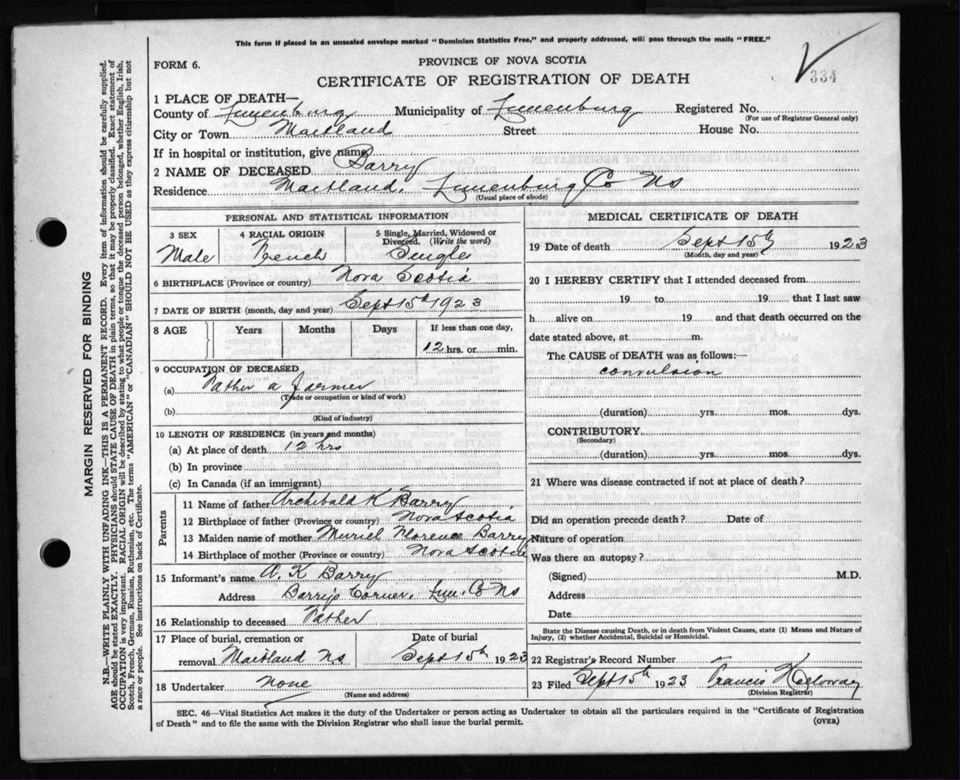 This form if placed in an unsealed envelope marked "Dominion Statistics Free," and properly addressed, will pass through the mails "FREE."
FORM 6.
PROVINCE OF NOVA SCOTIA
CERTIFICATE OF REGISTRATION OF DEATH
334
1 PLACE OF DEATH—
County of Lunenburg Municipality of Lunenburg Registered No.
(For use of Registrar General only)
City or Town Maitland Street House No.
If in hospital or institution, give name
2 NAME OF DECEASED Barry
Residence Maitland, Lunenburg Co Ns
(Usual place of abode)
PERSONAL AND STATISTICAL INFORMATION
3 SEX
Male
4 RACIAL ORIGIN
French
5 Single, Married, Widowed or Divorced. (Write the word)
Single
6 BIRTHPLACE (Province or country) Nova Scotia
7 DATE OF BIRTH (month, day and year) Sept 15th 1923
8 AGE Years Months Days If less than one day,
12 hrs. or min.
9 OCCUPATION OF DECEASED
(a) Father a Farmer
(Trade or occupation or kind of work)
(b)
(Kind of industry)
10 LENGTH OF RESIDENCE (in years and months)
(a) At place of death 12 hrs
(b) In province
(c) In Canada (if an immigrant)
Parents
11 Name of father Archibald K Barry
12 Birthplace of father (Province or country) Nova Scotia
13 Maiden name of mother Muriel Florence Barry
14 Birthplace of mother (Province or country) Nova Scotia
15 Informant's name A. K Barry
Address Barrys Corner, Lun. Co Ns
16 Relationship to deceased Father
17 Place of burial, cremation or Date of burial
removal Maitland Ns Sept 15th 1923
18 Undertaker None
(Name and address)
MEDICAL CERTIFICATE OF DEATH
19 Date of death Sept 15th 1923
(Month, day and year)
20 I HEREBY CERTIFY that I attended deceased from
19 to 19 that I last saw
h alive on 19 and that death occurred on the
date stated above, at m.
The CAUSE of DEATH was as follows:—
convulsion
(duration) yrs. mos. dys.
CONTRIBUTORY
(Secondary)
(duration) yrs. mos. dys.
21 Where was disease contracted if not at place of death?
Did an operation precede death? Date of
Nature of operation
Was there an autopsy?
(Signed) M.D.
Address
Date
State the Disease causing Death, or in death from Violent Causes, state (1) Means and Nature of
Injury, (2) whether Accidental, Suicidal or Homicidal.
22 Registrar's Record Number
23 Filed Sept 15th 1923 Francis
(Division Registrar)
SEC. 46—Vital Statistics Act makes it the duty of the Undertaker or person acting as Undertaker to obtain all the particulars required in the "Certificate of Registration
of Death" and to file the same with the Division Registrar who shall issue the burial permit.
(OVER)
MARGIN RESERVED FOR BINDING
N.B.—WRITE PLAINLY WITH UNFADING INK—THIS IS A PERMANENT RECORD. Every item of information should be carefully supplied.
AGE should be stated EXACTLY. PHYSICIANS should STATE CAUSE OF DEATH in plain terms, so that it may be properly classified. Exact statement of
OCCUPATION is very important. RACIAL ORIGIN will be described by stating to what people or tongue the deceased person belonged, whether English, Irish,
Scotch, French, German, Russian, Ruthenian, etc. The terms "AMERICAN" or "CANADIAN" SHOULD NOT BE USED as they express citizenship but not
a race or people. See instructions on back of Certificate.